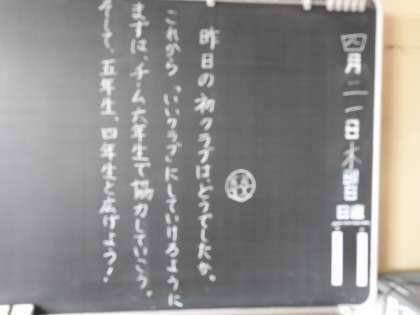 四月二一日木曜日
日直
昨日の初クラブは、どうでしたか。
これから「いいクラブ」にしていけるように
まずは、チーム六年生で協力していこう。
そして、五年生、四年生と広げよう!